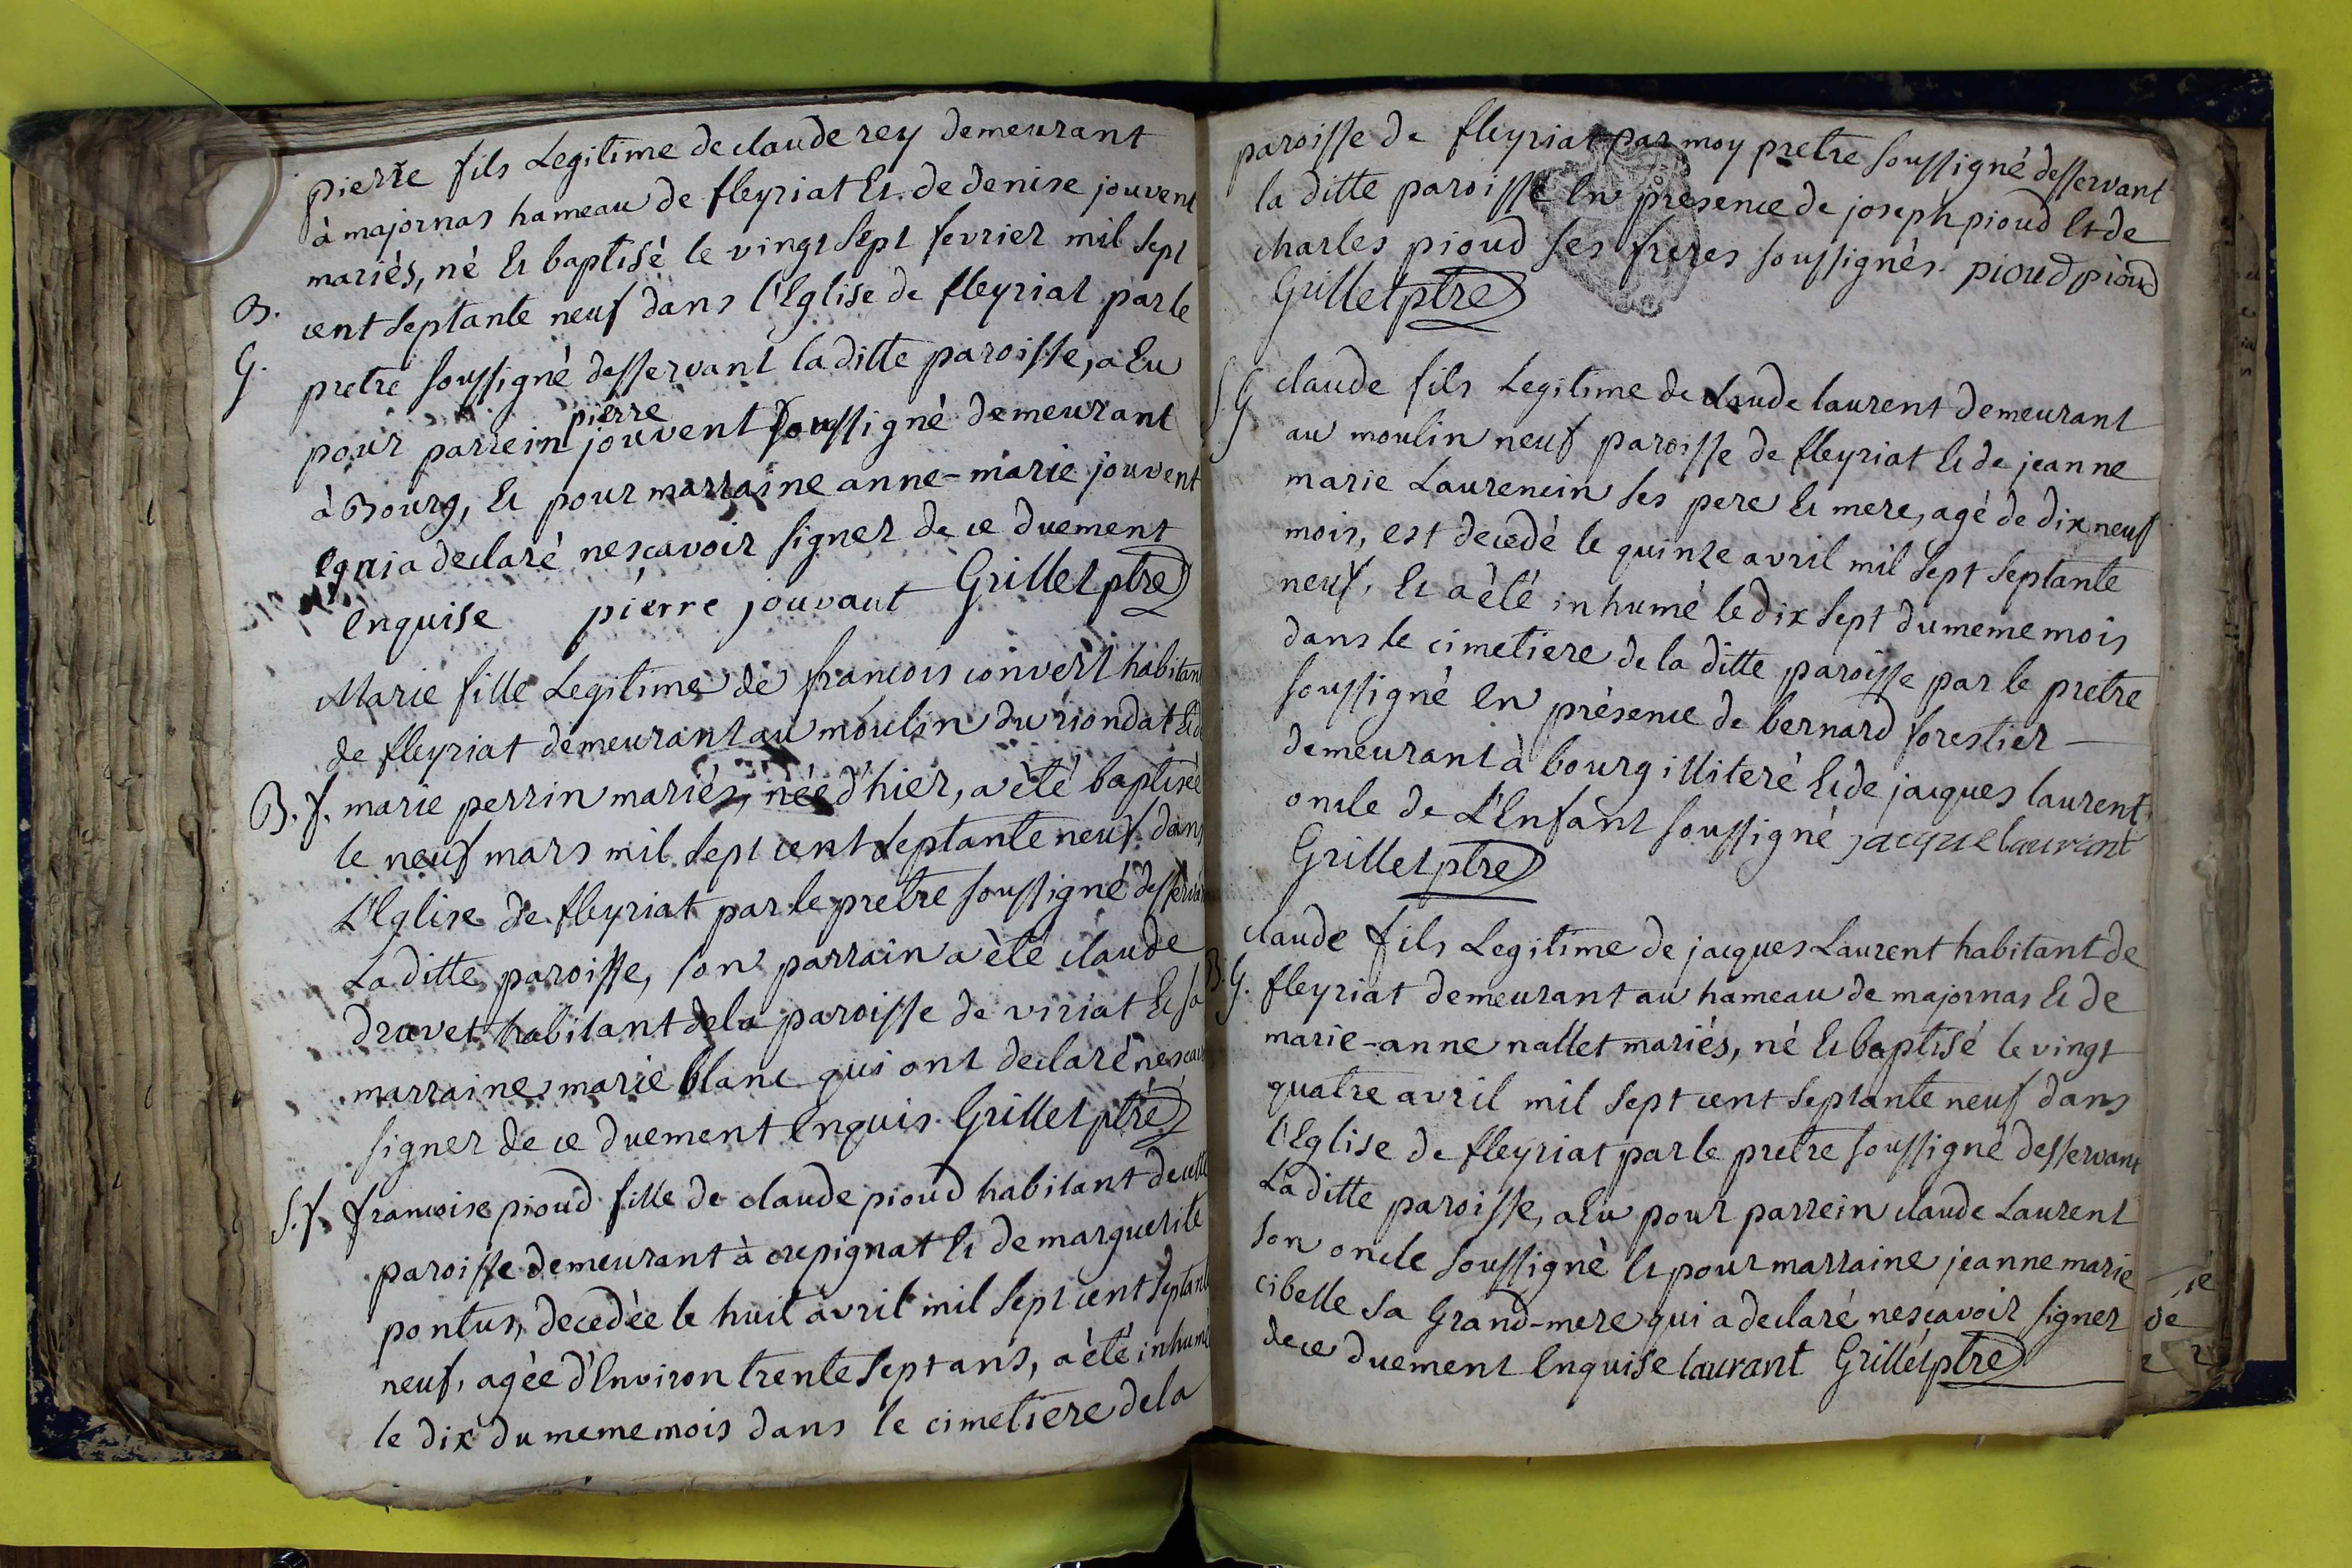 pierre fils Legitime de claude rey demeurant
à majornas hameau de fleyriat Et de denise jouvent
mariés, né Et baptisé le vingt sept fevrier mil sept
B. cent septante neuf dans l'Eglise de fleyriat par le
G. pretre soussigné desservant la ditte paroisse, a Eu
pierre
pour parrein jouvent soussigné demeurant
à Bourg, Et pour marraine anne-marie jouvent
qui a declaré nescavoir signer de ce duement
Enquise pierre jouvant Grillet ptre
Marie fille Legitime de francois convert habitant
de fleyriat demeurant au moulin du riondat Et de
B. f. marie perrin mariés, née d'hier, a èté baptisée
le neuf mars mil sept cent septante neuf dans
L'Eglise de fleyriat par le pretre soussigné desservant
La ditte paroisse, son parrain a èté claude
druvet habitant de la paroisse de viriat Et sa
marraine marie blanc qui ont declaré nescavoir
signer de ce duement Enquis Grillet ptre
S. f. francoise pioud fille de claude pioud habitant de cette
paroisse demeurant à crepignat Et de marguerite
pontus, decedée le huit avril mil sept cent septante
neuf, agée d'Environ trente sept ans, a èté inhumé
le dix du meme mois dans le cimetiere de la
paroisse de fleyriat par moy pretre soussigné desservant
la ditte paroisse En présence de joseph pioud Et de
charles pioud ses freres soussignés pioud pioud
Grillet ptre
S. G claude fils Legitime de claude laurent demeurant
au moulin neuf paroisse de fleyriat Et de jeanne
marie Laurencin ses pere Et mere, agé de dix neuf
mois, est decedé le quinze avril mil sept septante
neuf, Et a èté inhumé le dix sept du meme mois
dans le cimetiere de la ditte paroisse par le prètre
soussigné En présence de bernard forestier
demeurant à bourg illiteré Et de jacques laurent
oncle de L'Enfant soussigné jacque laurant
Grillet ptre
claude fils Legitime de jacques Laurent habitant de
B. G. fleyriat demeurant au hameau de majornas Et de
marie-anne nallet mariés, né Et baptisé le vingt
quatre avril mil sept cent septante neuf dans
l'Eglise de fleyriat par le pretre soussigné desservant
La ditte paroisse, a Eu pour parrein claude Laurent
son oncle soussigné Et pour marraine jeanne marie
cibelle sa Grand-mere qui a declaré nescavoir signer
de ce duement Enquise laurant Grillet ptre